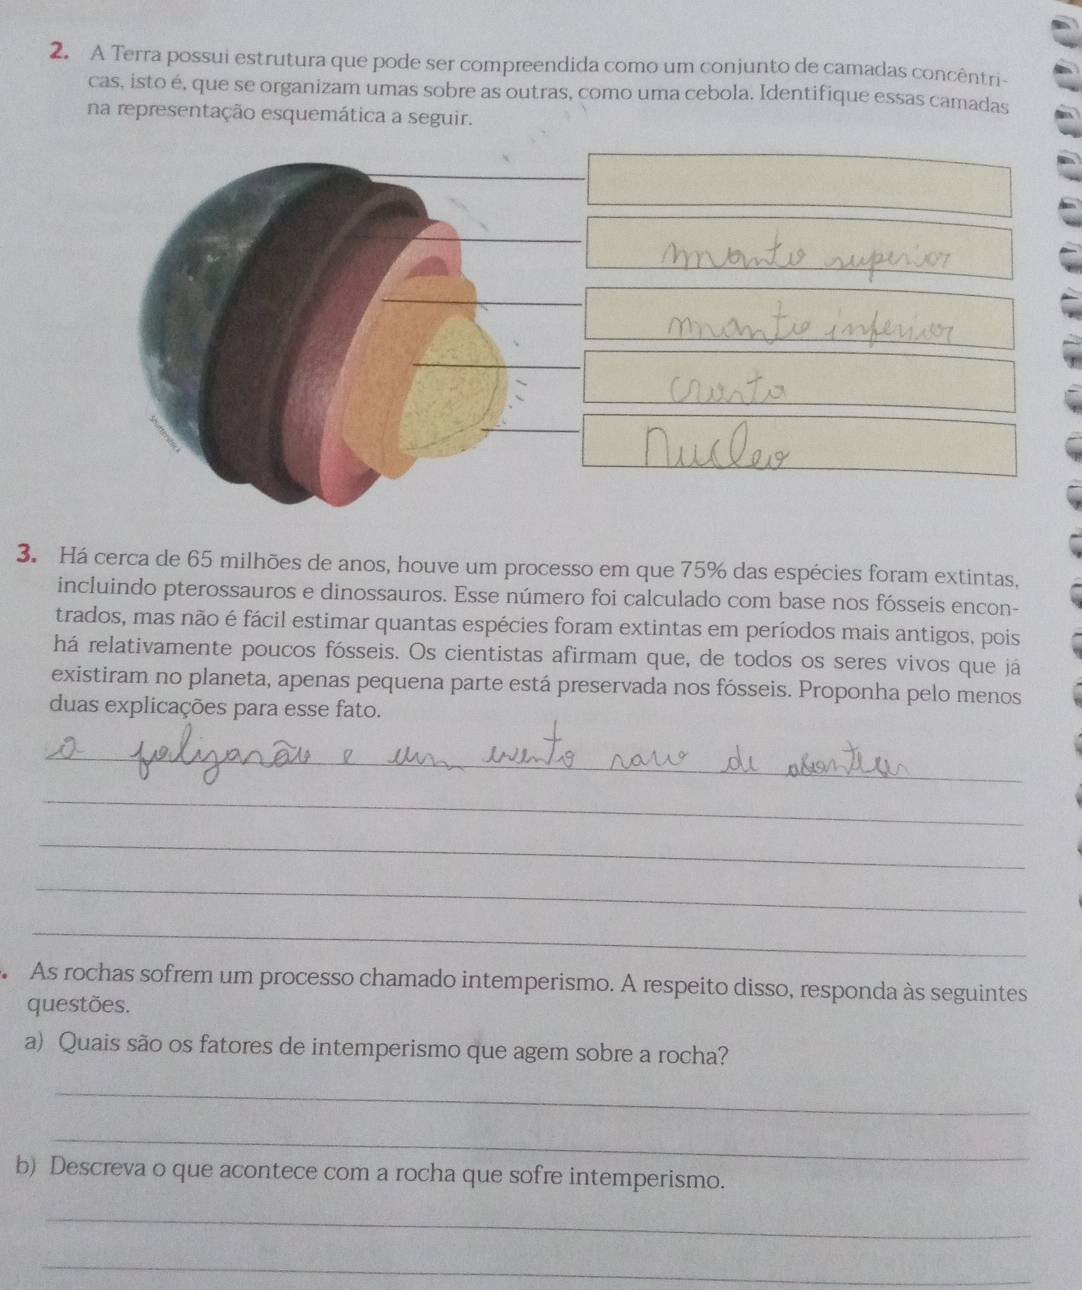 2. A Terra possui estrutura que pode ser compreendida como um conjunto de camadas concêntri-
cas, isto é, que se organizam umas sobre as outras, como uma cebola. Identifique essas camadas
na representação esquemática a seguir.
manto superior
manto inferior
crosta
Nucleo
Shutterstock
3. Há cerca de 65 milhões de anos, houve um processo em que 75% das espécies foram extintas,
incluindo pterossauros e dinossauros. Esse número foi calculado com base nos fósseis encon-
trados, mas não é fácil estimar quantas espécies foram extintas em períodos mais antigos, pois
há relativamente poucos fósseis. Os cientistas afirmam que, de todos os seres vivos que já
existiram no planeta, apenas pequena parte está preservada nos fósseis. Proponha pelo menos
duas explicações para esse fato.
a e um evento raro de
As rochas sofrem um processo chamado intemperismo. A respeito disso, responda às seguintes
questões.
a) Quais são os fatores de intemperismo que agem sobre a rocha?
b) Descreva o que acontece com a rocha que sofre intemperismo.